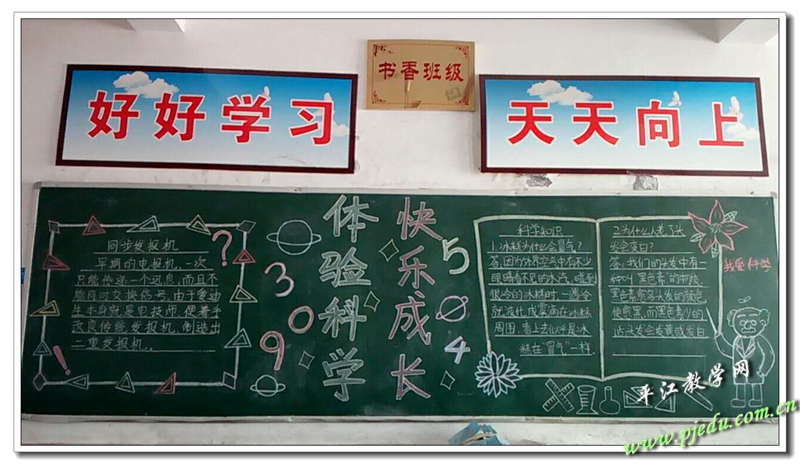 书香班级
好好学习
天天向上
同步发报机
早期的电报机,一次
只能传递一个讯息,而且不
能同时交换信号,由于爱迪
生本身就是电技师,便着手
改良传统发报机,制造出
二重发报机.
?
!
3
0
9
体验科学
快乐成长
5
4
科学知识
1.冰料为什么会冒气?
答,因为外界空气中有不少
眼睛看不见的水汽,碰到
很冷的冰料时,一遇冷
就液化成雾滴在冰料
周围,看上去似乎是冰
料在“冒气”一样.
2.为什么人老了头
发会变白?
答:我们的头发中有
种叫黑色素的
黑色素愈多头发的颜色
便愈黑,而黑色素少的
话,头发会发黄或发白
我爱科学
平江教学网
www.pjedu.com.cn